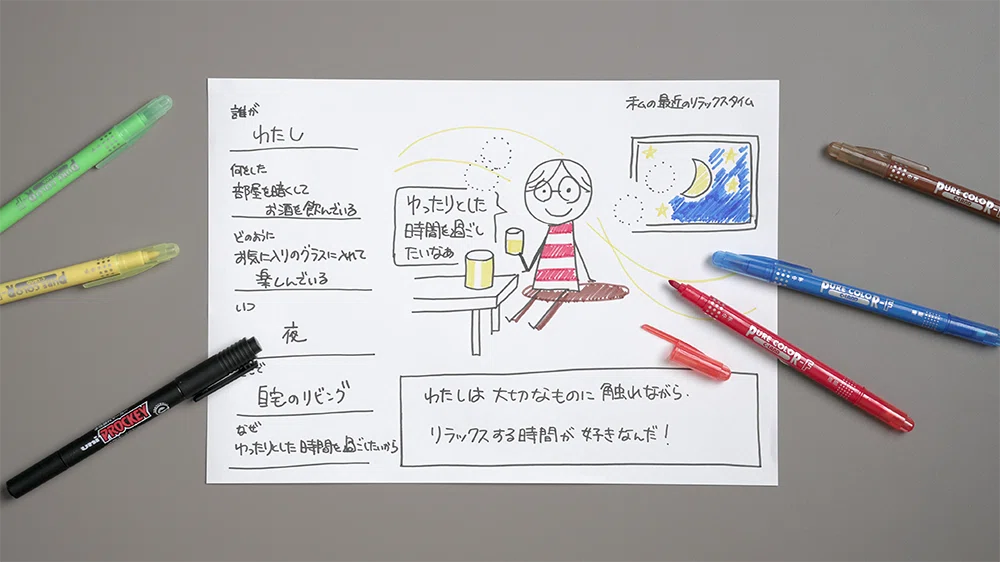 私の最近のリラックスタイム
誰が
わたし
何をした
部屋を暗くして
お酒を飲んでいる
どのように
お気に入りのグラスに入れて
楽しんでいる
いつ
夜
自宅のリビング
なぜ
ゆったりとした時間を過ごしたいから
ゆったりとした
時間を過ごし
たいなぁ
わたしは大切なものに触れながら、
リラックスする時間が好きなんだ!
uni PROCKEY
PURE COLOR-F
PURE COLOR-F
PURE COLOR-F